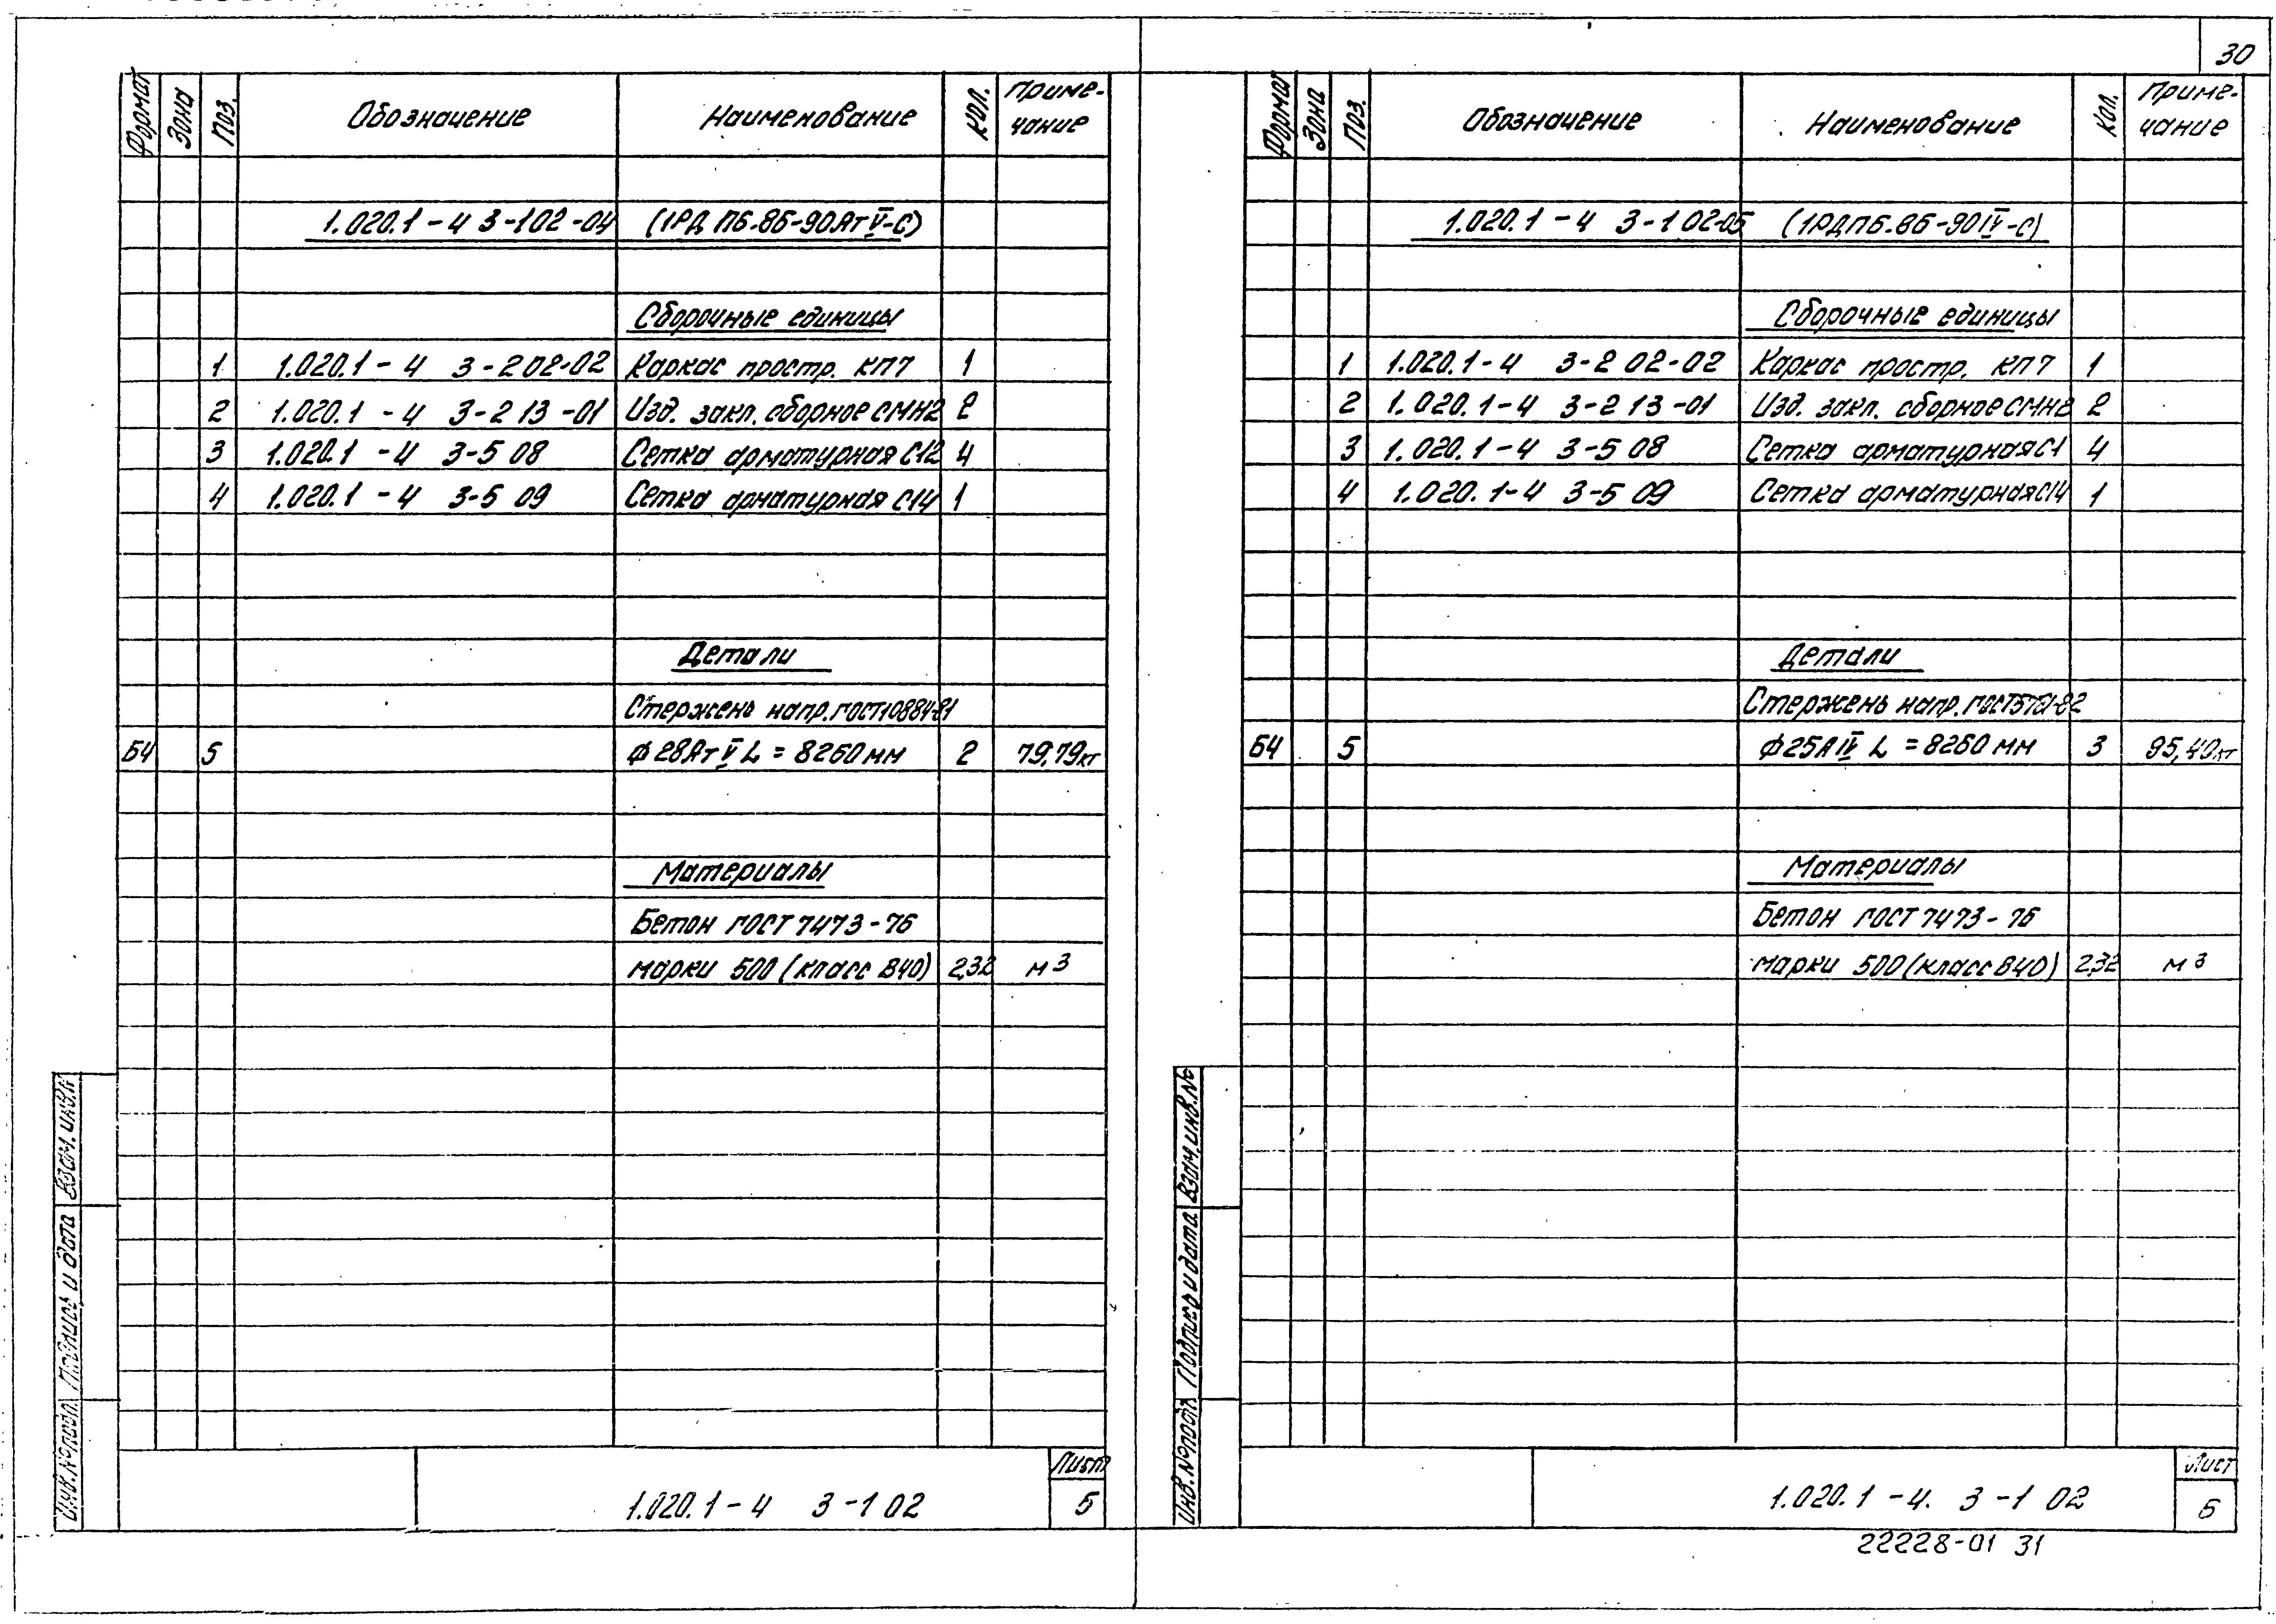 30
Формат Зона Поз. Обозначение Наименование Кол. Приме-
чание
1.020.1-4 3-1 02-04 (1РДП6.86-90АтV-С)
Сборочные единицы
1 1.020.1-4 3-2 02-02 Каркас простр. КП7 1
2 1.020.1-4 3-2 13-01 Изд. закл. сборное СМН2 2
3 1.020.1-4 3-5 08 Сетка арматурная С12 4
4 1.020.1-4 3-5 09 Сетка арматурная С14 1
Детали
Стержень напр. ГОСТ10884-81
Б4 5 ϕ28АтV L=8260мм 2 79,79кг
Материалы
Бетон ГОСТ 7473-76
марки 500 (класс В40) 2,32 м3
Инв.№подл. Подпись и дата Взам.инв.№
1.020.1-4 3-1 02
Лист
5
Формат Зона Поз. Обозначение Наименование Кол. Приме-
чание
1.020.1-4 3-1 02-05 (1РДП6.86-90IV-С)
Сборочные единицы
1 1.020.1-4 3-2 02-02 Каркас простр. КП7 1
2 1.020.1-4 3-2 13-01 Изд. закл. сборное СМН2 2
3 1.020.1-4 3-5 08 Сетка арматурная С1 4
4 1.020.1-4 3-5 09 Сетка арматурная С14 1
Детали
Стержень напр. ГОСТ5781-82
Б4 5 ϕ25АIV L=8260мм 3 95,40кг
Материалы
Бетон ГОСТ 7473-76
марки 500 (класс В40) 2,32 м3
Инв.№подл. Подпись и дата Взам.инв.№
1.020.1-4. 3-1 02
Лист
6
22228-01 31